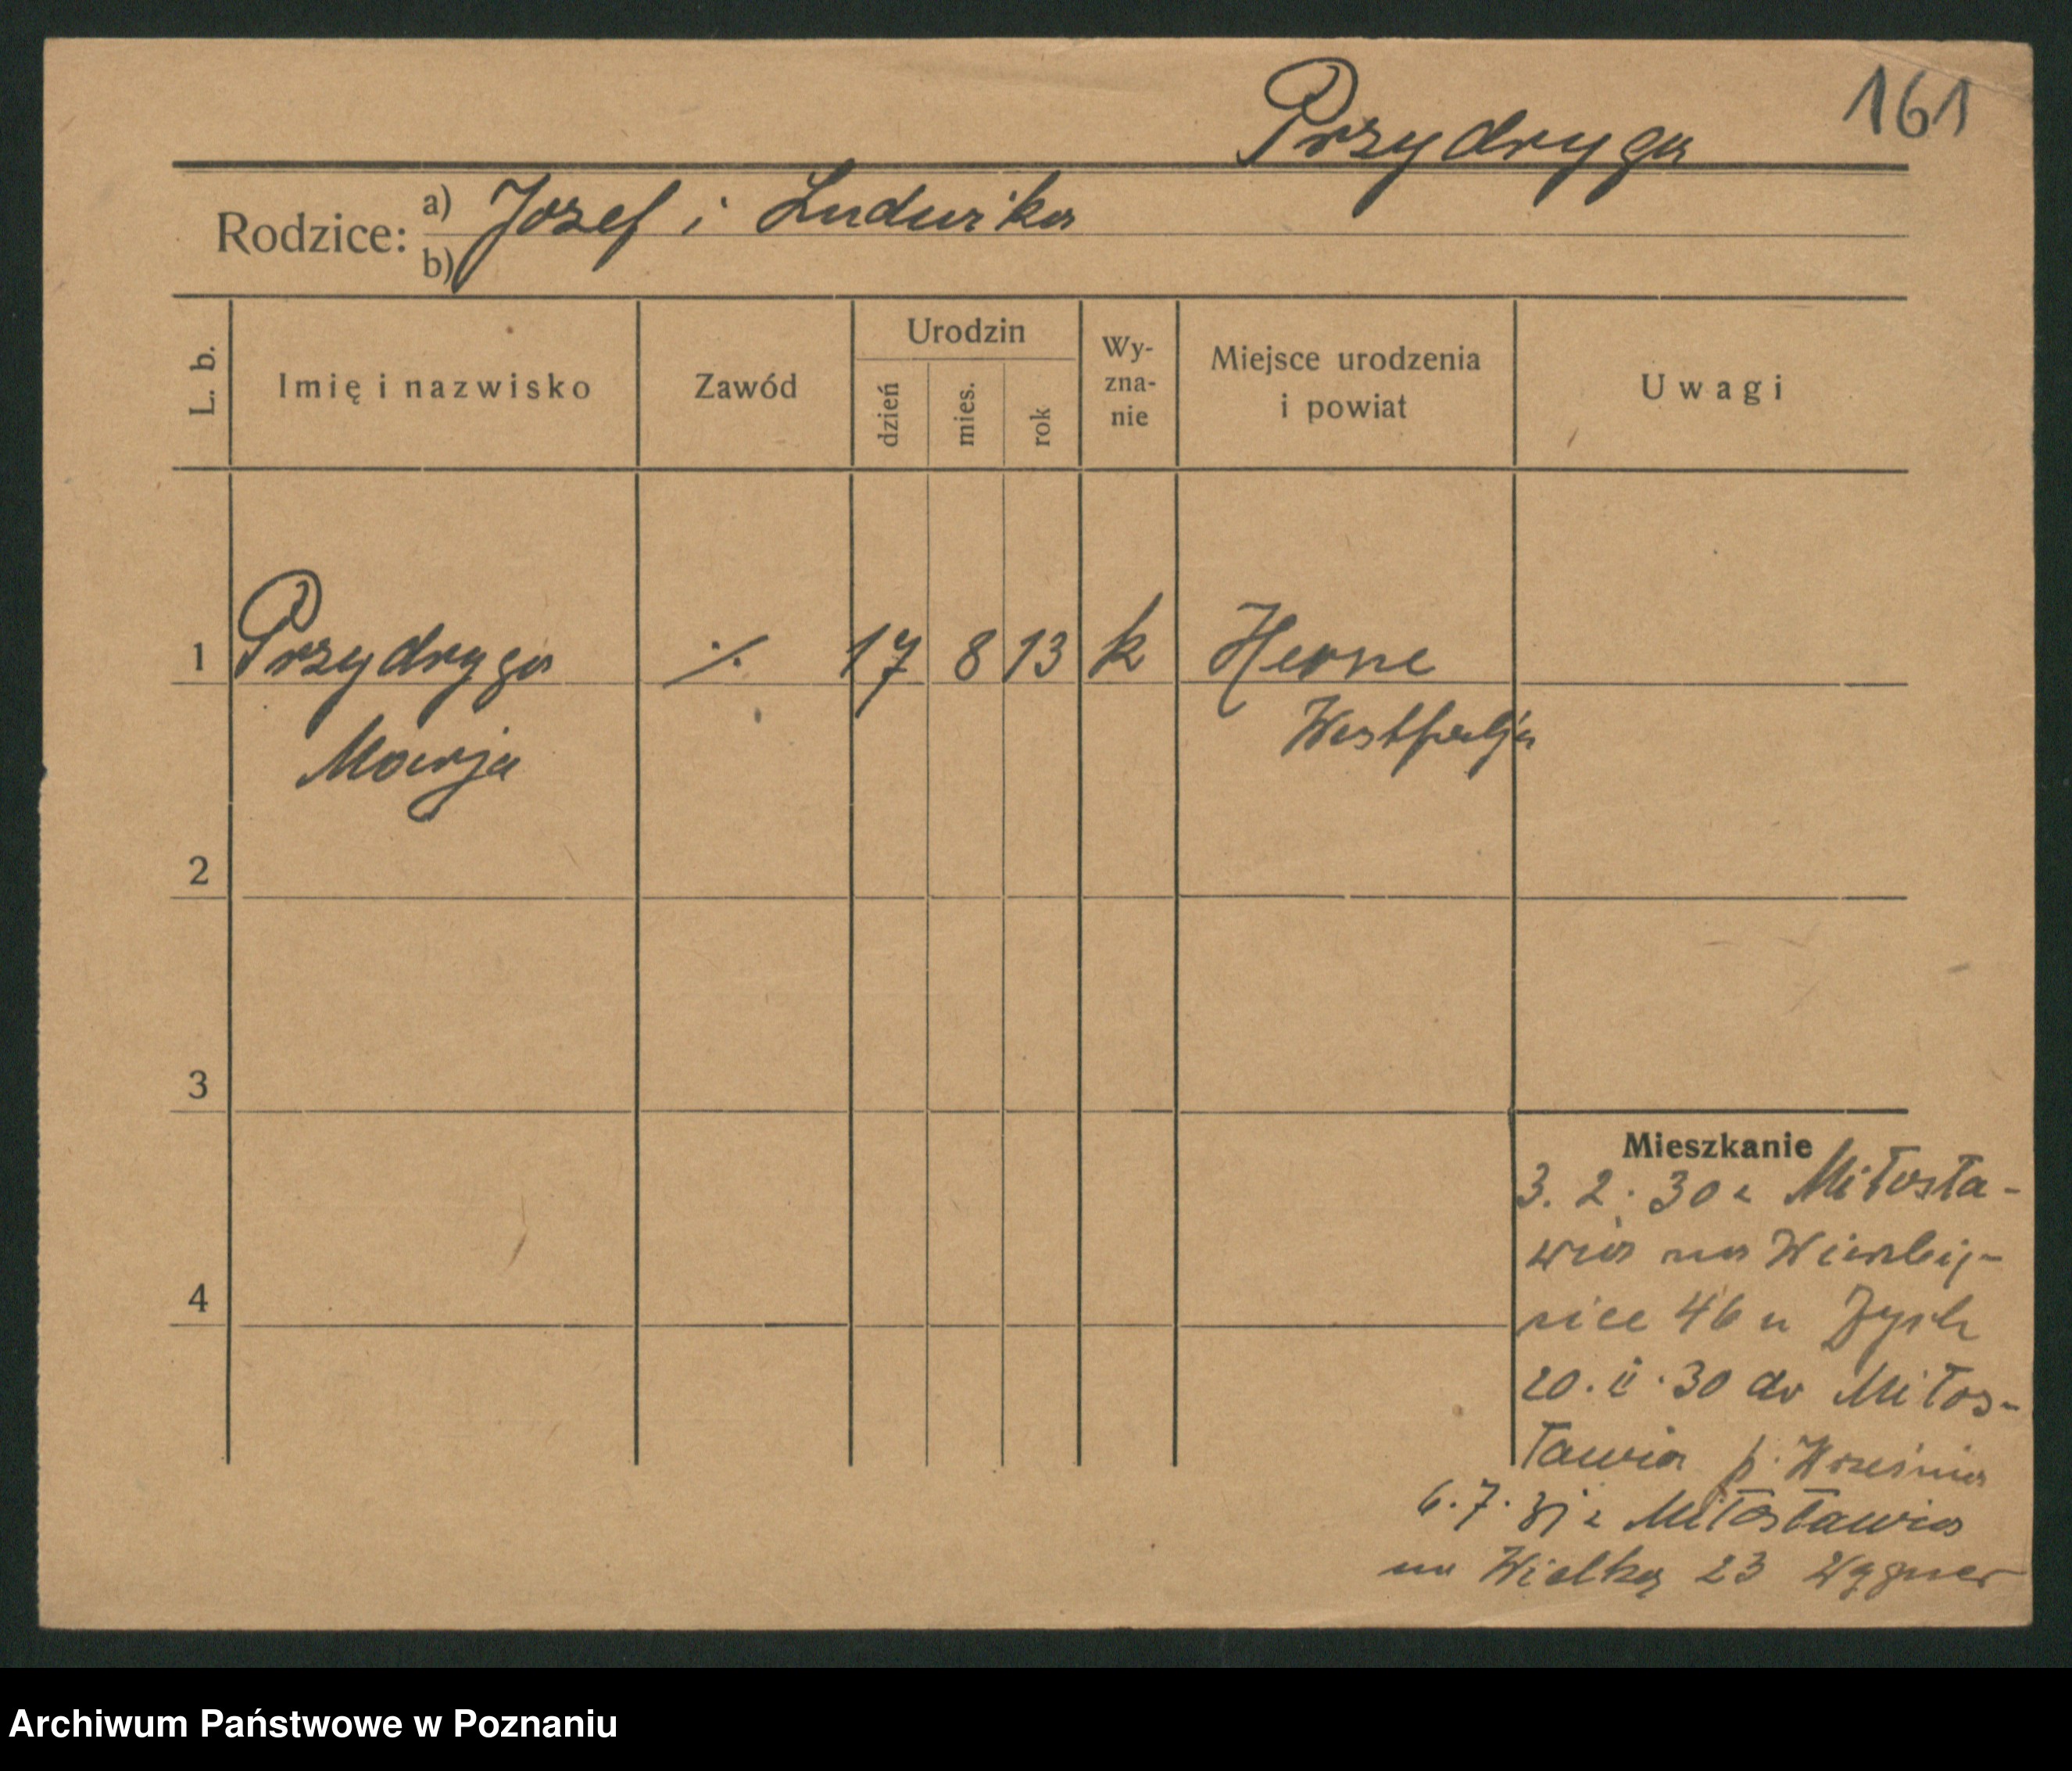 161
Przydryga
Rodzice: a) Jozef i Ludwika
b)
L. b. Imię i nazwisko Zawód Urodzin dzień mies. rok Wy-zna-nie Miejsce urodzenia i powiat Uwagi
1 Przydryga ./. 17 8 13 k Herne
Marja Westfalja
2
3
Mieszkanie
3. 2. 30 z Miłosła-
wia na Wierzbię-
4
cice 46 u Zych
20. II. 30 do Miłos-
ławia p. Września
6. 7. 31 z Miłosławia
na Wielką 23
Archiwum Państwowe w Poznaniu